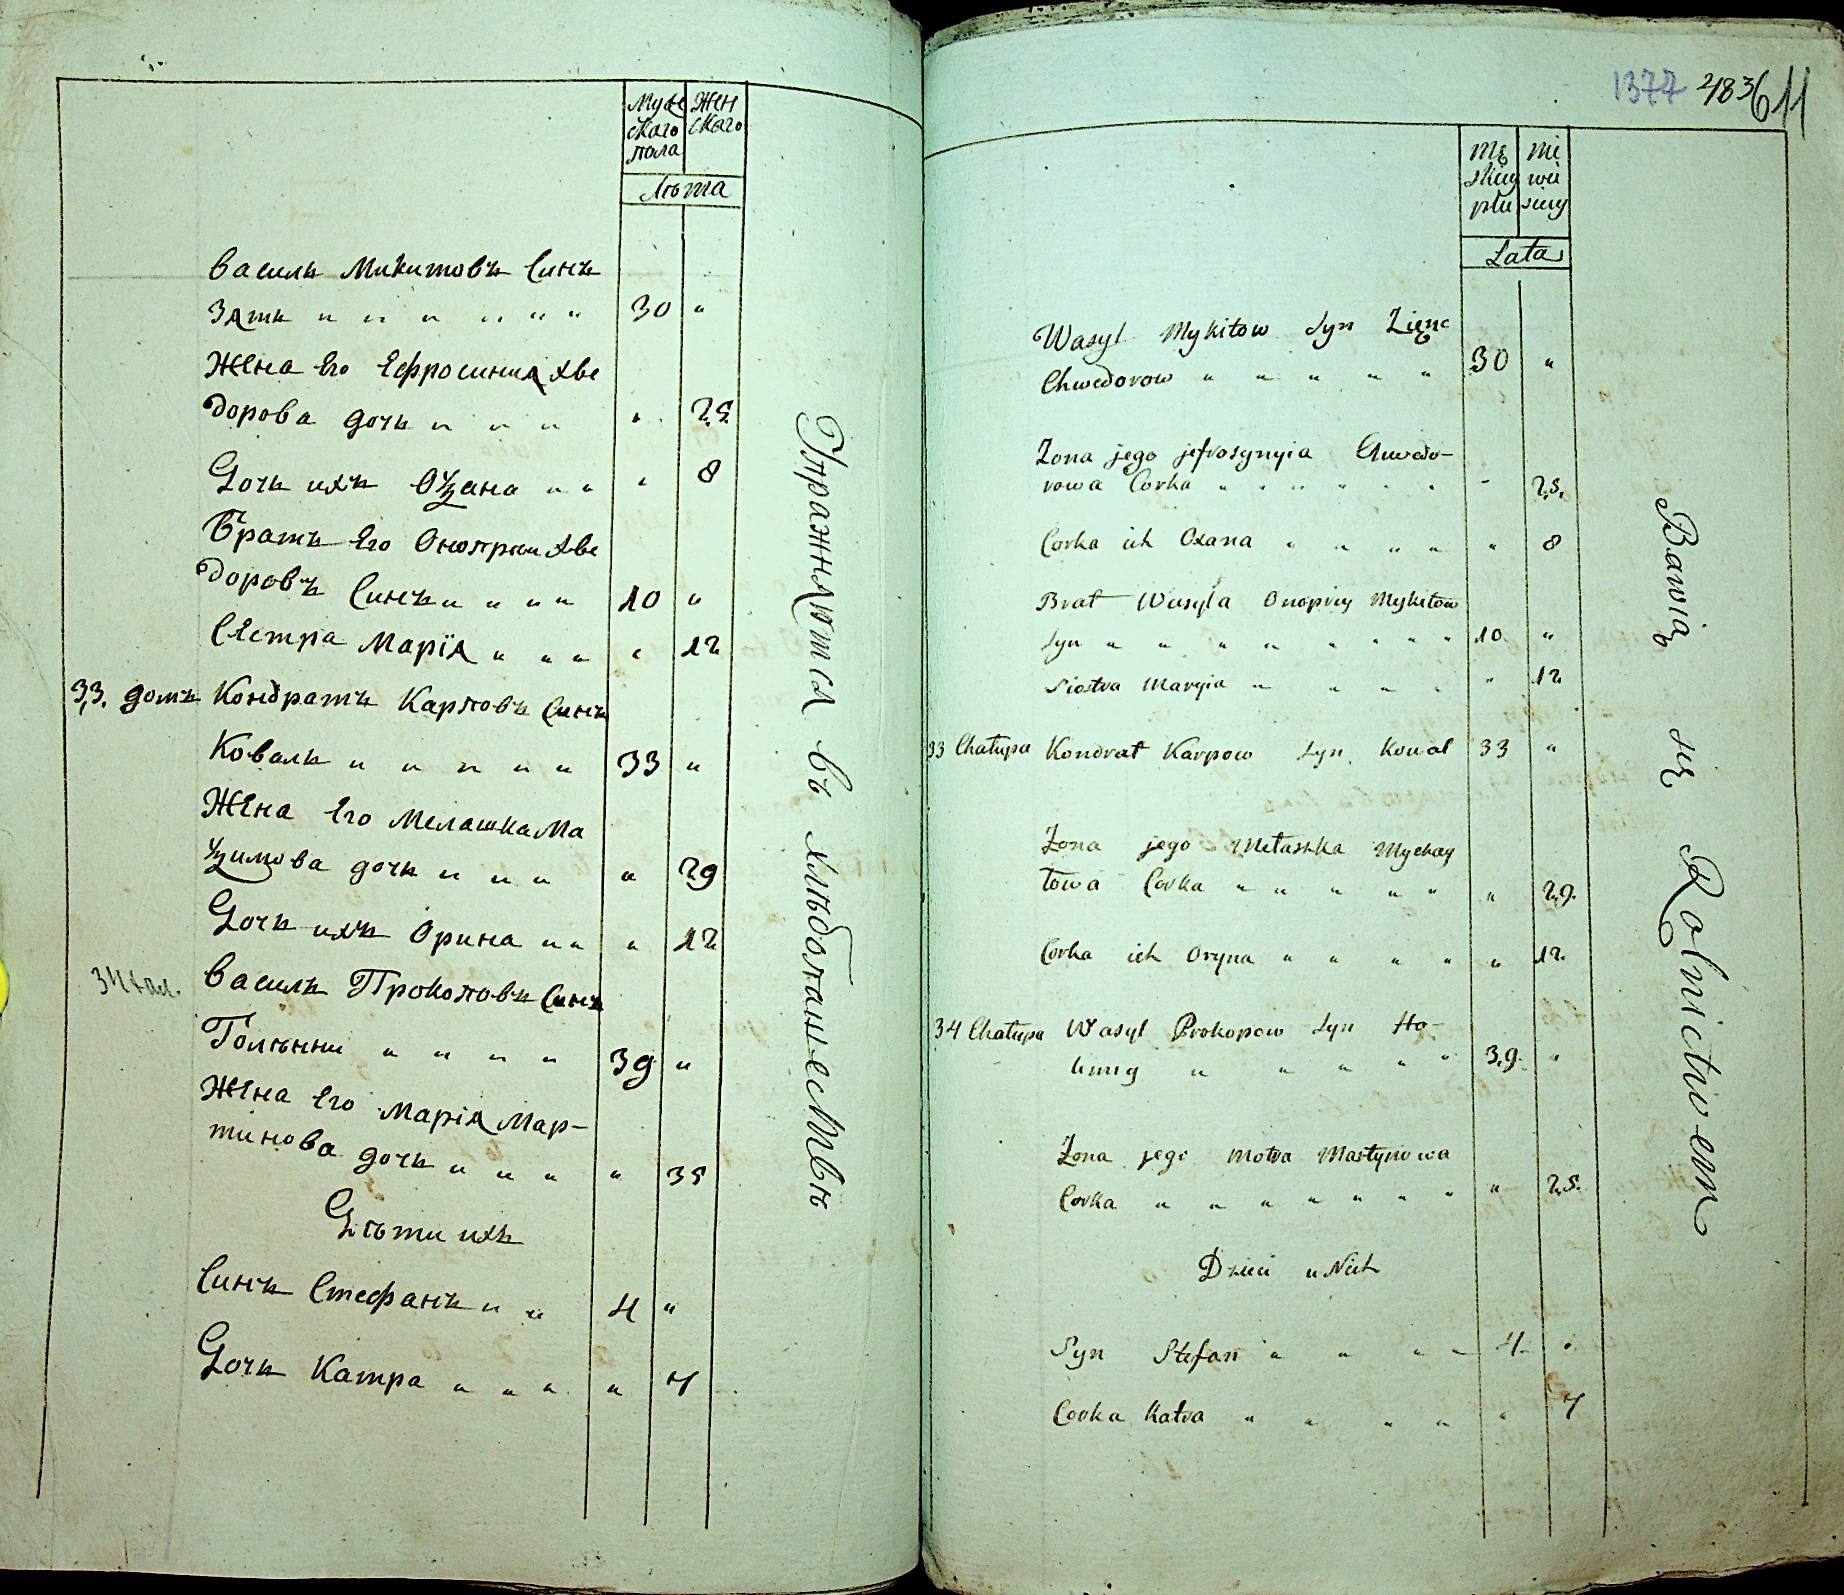 Муже Жен
скаго скаго
пола
Лѣта
Василь Микитовъ Синъ
Зять " " " " " " 30 "
Жена Его Ефросиния Хве
дорова дочь " " " " 25
Дочь ихъ Оѯана " " " 8
Братъ Его Онопрыи Хве
доровъ Синъ " " " " 10 "
Сестра Марїя " " " " 12
33. домъ Кондратъ Карповъ Синъ
Коваль " " " " " 33 "
Жена Его Мелашка Ма
ѯимова дочь " " " " 29
Дочь ихъ Орина " " " 12
34 хал. Василь Прокоповъ Синъ
Голѣнни " " " " 39 "
Жена Его Марія Мар-
тинова дочь " " " " 35
Дѣти ихъ
Синъ Стефанъ " " 4 "
Дочь Катра " " " " 7
Пражняются въ хлѣбопашествѣ
1377 483 611
Mę ni
skiey wie
płci sciey
Lata
Wasyl Mykitow Syn Zięnc
Chwedorow " " " " " 30 "
Zona jego jefrosynyia Chwedo-
rowa Corka " " " " " " - 25.
Corka ich Oxana " " " " " 8
Brat Wasyla Onopriy Mykitow
Syn " " " " " " " " 10 "
Siostra Maryia " " " " " 12
33 Chałupa Kondrat Karpow Syn Kowal 33 "
Zona jego Melaszka Mychay
lowa Corka " " " " " " 29.
Corka ich Oryna " " " " " 12.
34 Chałupa Wasyl Prokopow Syn Ho-
linny " " " " " 39. "
Zona jego Motra Martynowa
Corka " " " " " " " 25.
Dzieci u Nich
Syn Stefan " " " " 4. "
Corka Katra " " " " " 7
Bawią się Rolnictwem